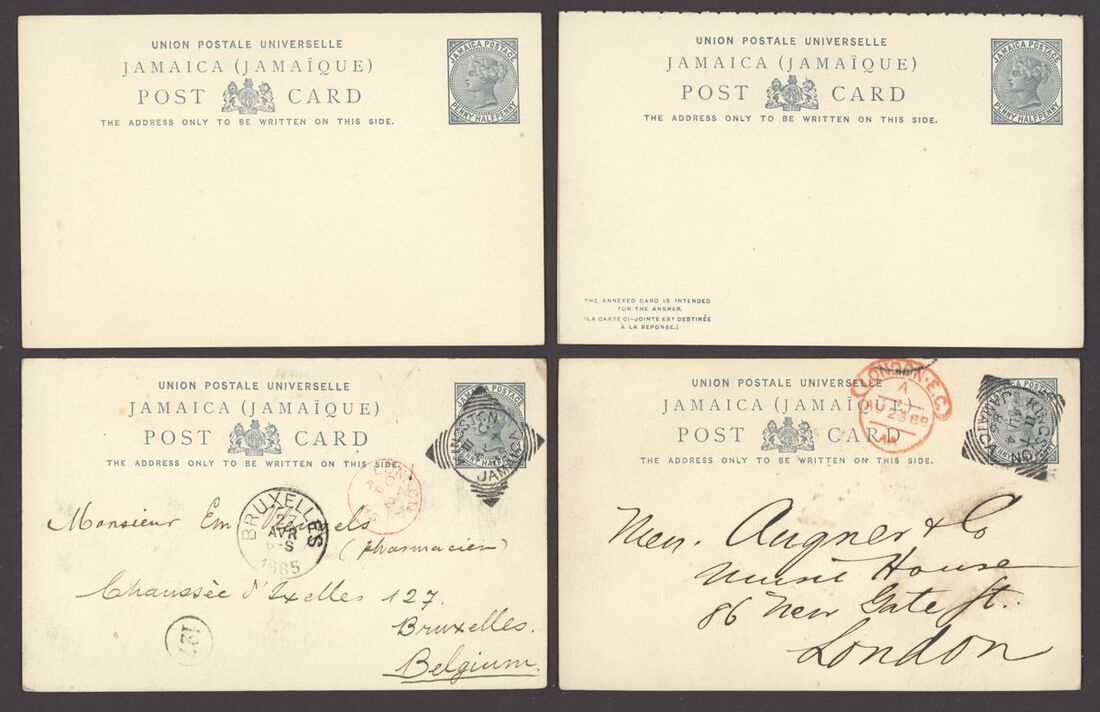 UNION POSTALE UNIVERSELLE
JAMAICA (JAMAÏQUE)
POST CARD
THE ADDRESS ONLY TO BE WRITTEN ON THIS SIDE.
JAMAICA POSTAGE
PENNY HALFPENNY
UNION POSTALE UNIVERSELLE
JAMAICA (JAMAÏQUE)
POST CARD
THE ADDRESS ONLY TO BE WRITTEN ON THIS SIDE.
JAMAICA POSTAGE
PENNY HALFPENNY
THE ANNEXED CARD IS INTENDED
FOR THE ANSWER.
(LA CARTE CI-JOINTE EST DESTINÉE
À LA RÉPONSE.)
UNION POSTALE UNIVERSELLE
JAMAICA (JAMAÏQUE)
POST CARD
THE ADDRESS ONLY TO BE WRITTEN ON THIS SIDE.
KINGSTON
JAMAICA
LONDON
BRUXELLES
27
AVR
1885
Monsieur Em
(pharmacien)
Chaussée d'Ixelles 127.
Bruxelles.
Belgium.
137
UNION POSTALE UNIVERSELLE
JAMAICA (JAMAÏQUE)
POST CARD
THE ADDRESS ONLY TO BE WRITTEN ON THIS SIDE.
LONDON·E.C.
A
AU 23 89
KINGSTON
JAMAICA
Augner & Co
Music House
86 New Gate St.
London